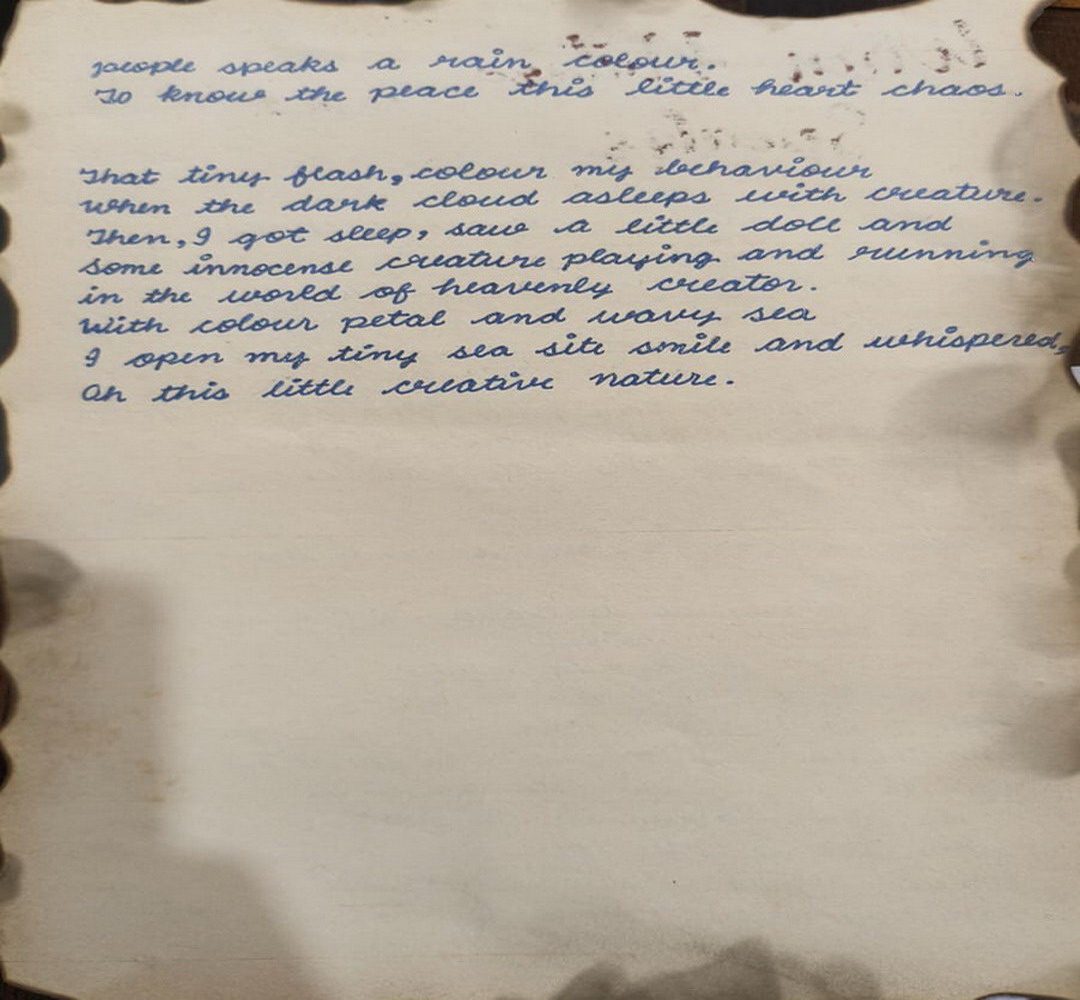 people speaks a rain colour.
To know the peace this little heart chaos.
That tiny flash, colour my behaviour
when the dark cloud asleeps with creature.
Then, I got sleep, saw a little doll and
some innocense creature playing and running
in the world of heavenly creator.
With colour petal and wavy sea
I open my tiny sea site smile and whispered,
Oh this little creative nature.